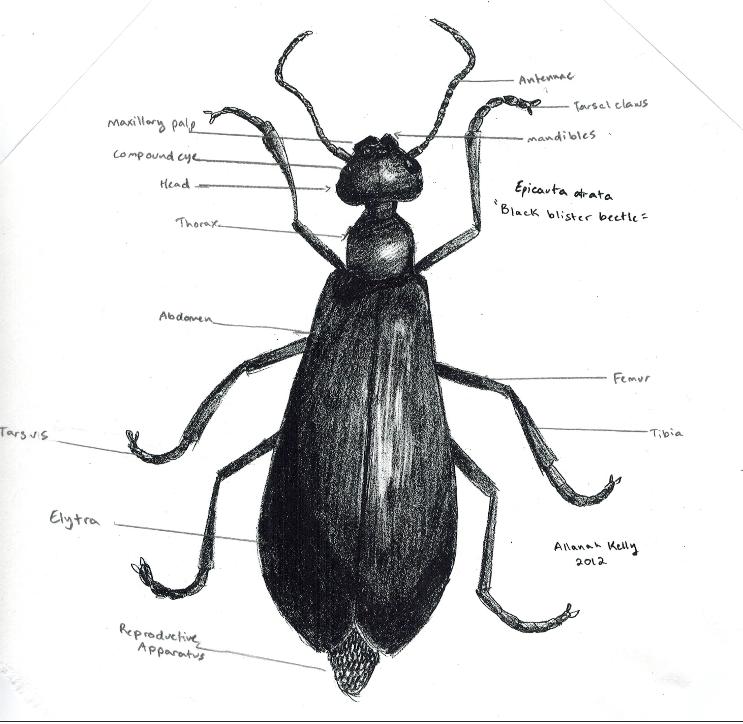 Antennae
Tarsel claws
Maxillary palp
mandibles
Compound eye
Head
Epicauta atrata
"Black blister beetle"
Thorax
Abdomen
Femur
Tarsus
Tibia
Elytra
Allanah Kelly
2012
Reproductive
Apparatus